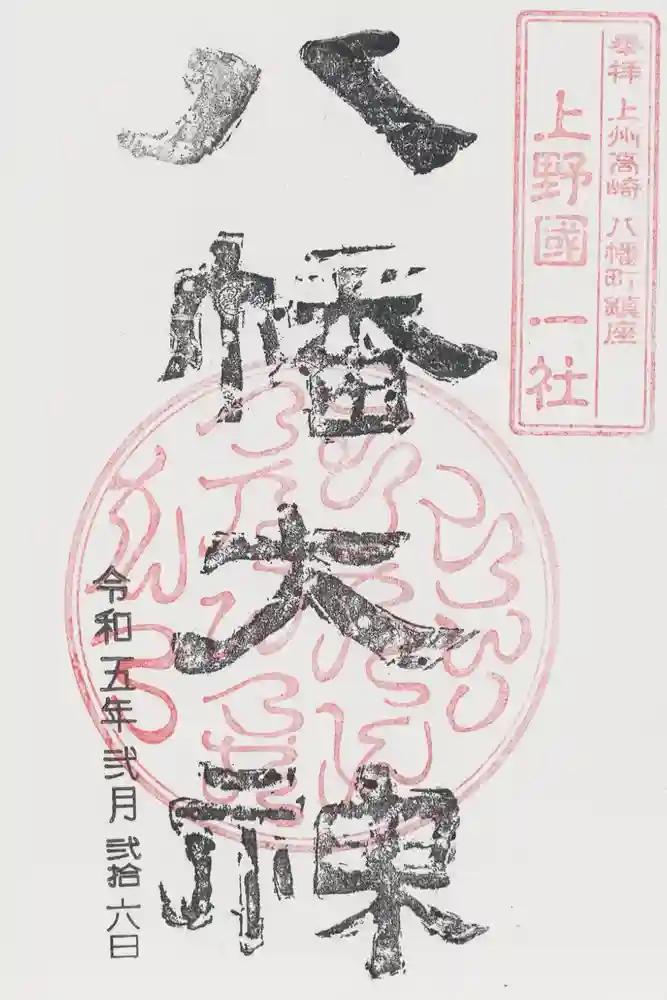 奉拝 上州高崎 八幡町鎮座
上野國一社
八幡大神
令和五年 弐月 弐拾六日